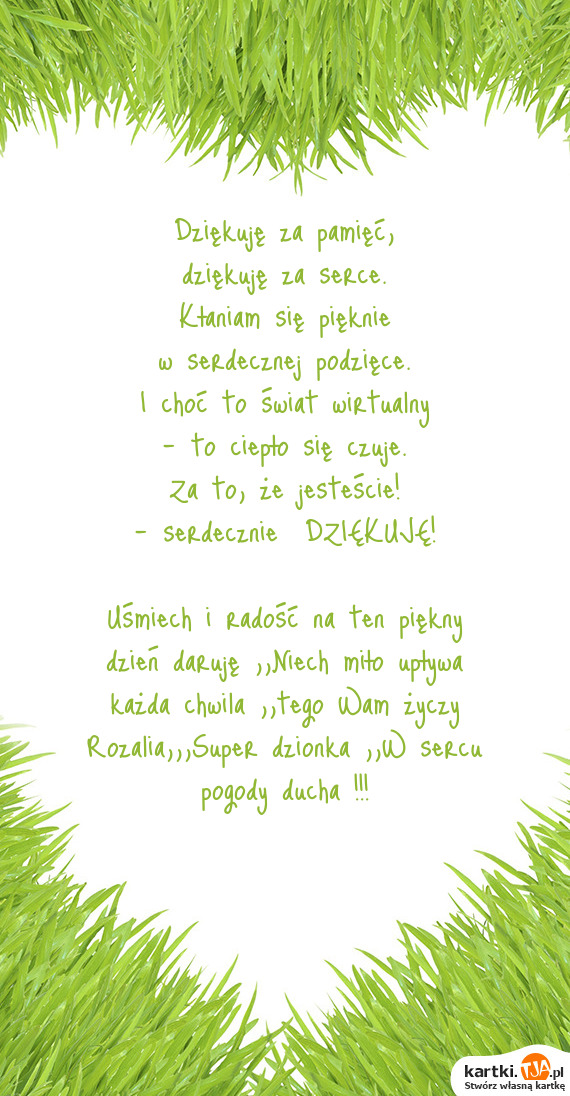 Dziękuję za pamięć,
dziękuję za serce.
Kłaniam się pięknie
w serdecznej podzięce.
I choć to świat wirtualny
- to ciepło się czuje.
Za to, że jesteście!
- serdecznie DZIĘKUJĘ!
Uśmiech i radość na ten piękny
dzień daruję ,,Niech miło upływa
każda chwila ,,tego Wam życzy
Rozalia,,,Super dzionka ,,W sercu
pogody ducha !!!
kartki.TJA.pl
Stwórz własną kartkę